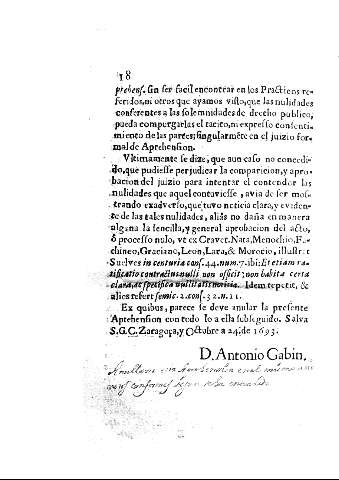 18
prehens. sin ser facil encontrar en los Practicos re-
feridos, ni otros que ayamos visto, que las nulidades
conferentes a las solemnidades de drecho publico,
pueda compurgarlas el tacito, ni expresso consenti-
miento de las partes; singularmẽte en el juizio for-
mal de Aprehension.
Vltimamente se dize, que aun caso no concedi-
do, que pudiesse perjudicar la comparicion, y apro-
bacion del juizio para intentar el contendor las
nulidades que aquel contuviesse, avia de ser mos-
trando exadverso, que tuvo noticia clara, y evidente
de las tales nulidades, aliàs no daña en manera
alguna la sencilla, y general aprobacion del acto,
ò processo nulo, vt ex Cravet. Nata, Menochio, Fa-
chineo, Graciano, Leon, Lara, & Morocio, illustr.
Suelves in centuria cons. 44. num. 7. ibi: Et etiam ra-
tificatio contractus nulli non officit; non habita certa
clara, ac specifica nullitatis notitia. Idem repetit, &
alies refert semic. 2. cons. 32. n. 11.
Ex quibus, parece se deve anular la presente
Aprehension con todo lo a ella subseguido. Salva
S.G.C. Zaragoça, y Octubre a 24. de 1693.
D. Antonio Gabin.